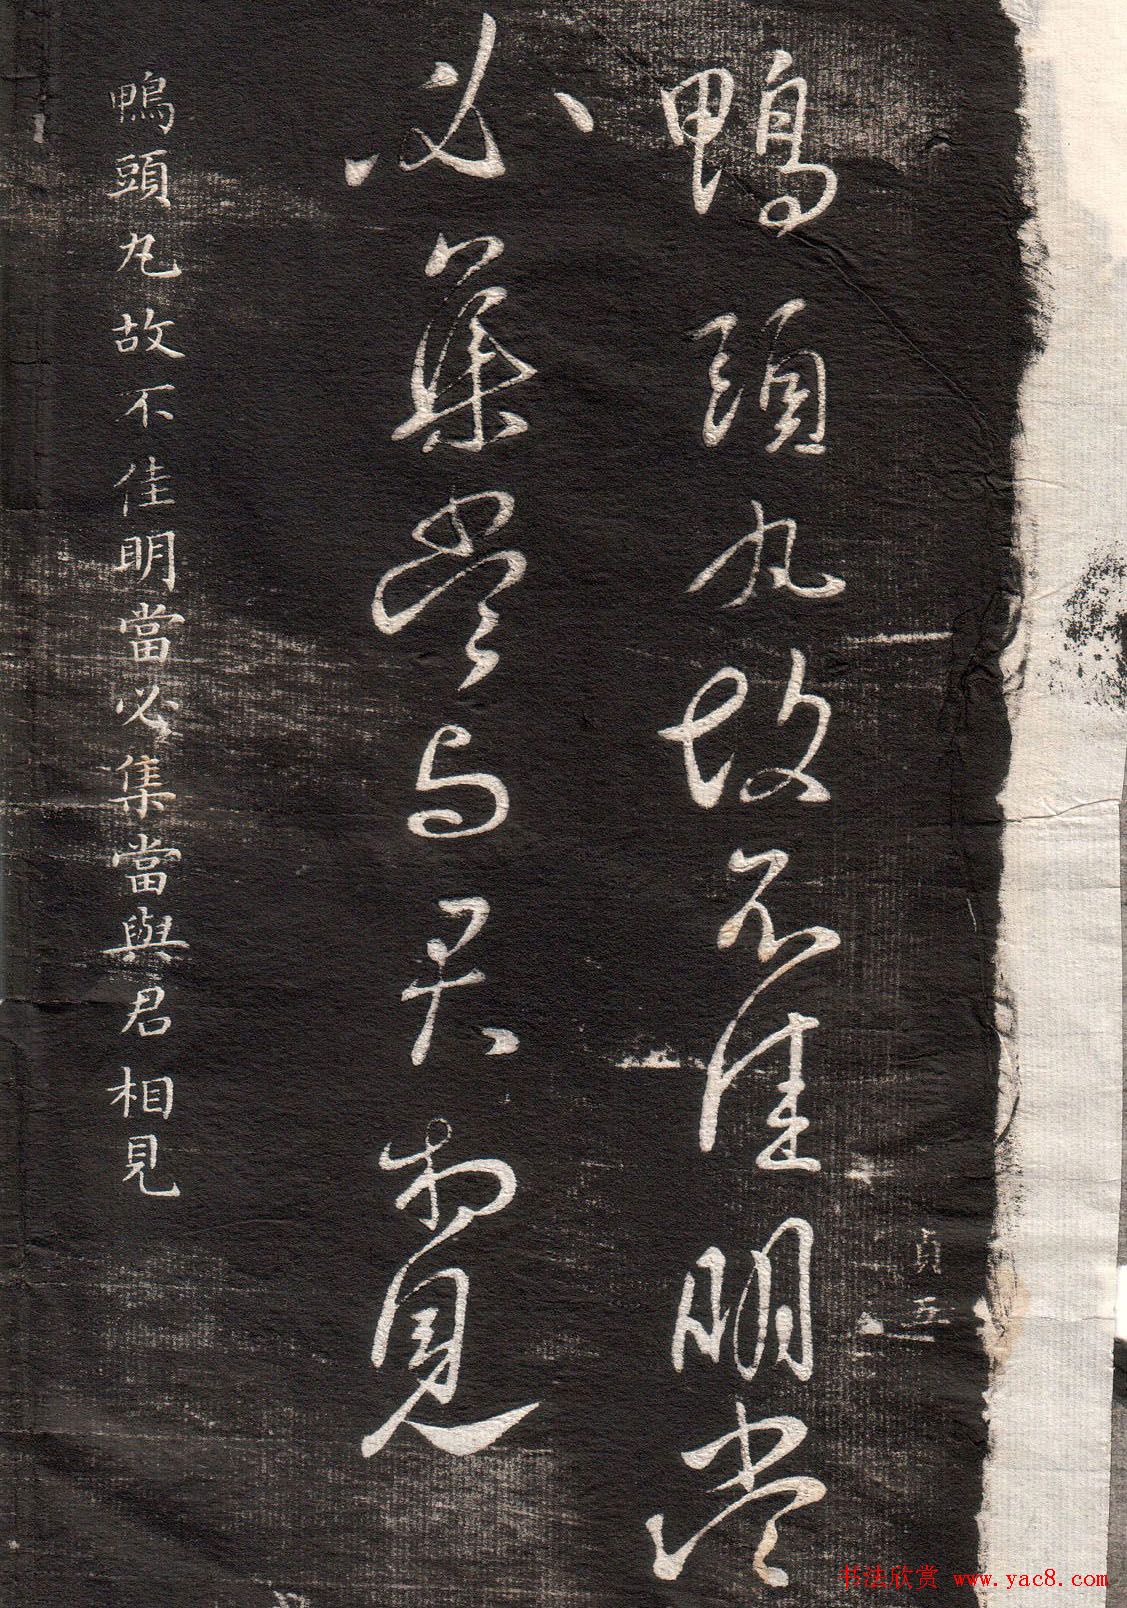 貞五
鴨頭丸故不佳明當
必集當与君相見
鴨頭丸故不佳明當必集當與君相見
书法欣赏 www.yac8.com